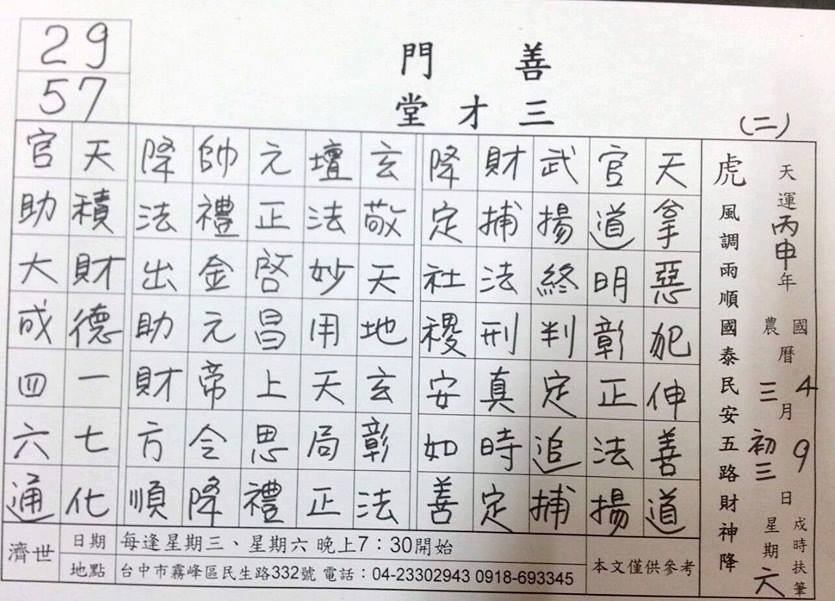 29
57
善門
三才堂
(二)
天運丙申年 國曆4月9日 戌時扶筆
農三初三 星期六
虎 風調雨順國泰民安五路財神降
天拿惡犯伸善道
官道明彰正法揚
武揚終判定追捕
財捕法刑真時定
降定社稷安如善
玄敬天地玄彰法
壇法妙用天局正
元正啓昌上思禮
帥禮金元帝令降
降法出助財方順
天積財德一七化
官助大成四六通
濟世
日期 每逢星期三、星期六 晚上7：30開始
地點 台中市霧峰區民生路332號 電話：04-23302943 0918-693345
本文僅供參考